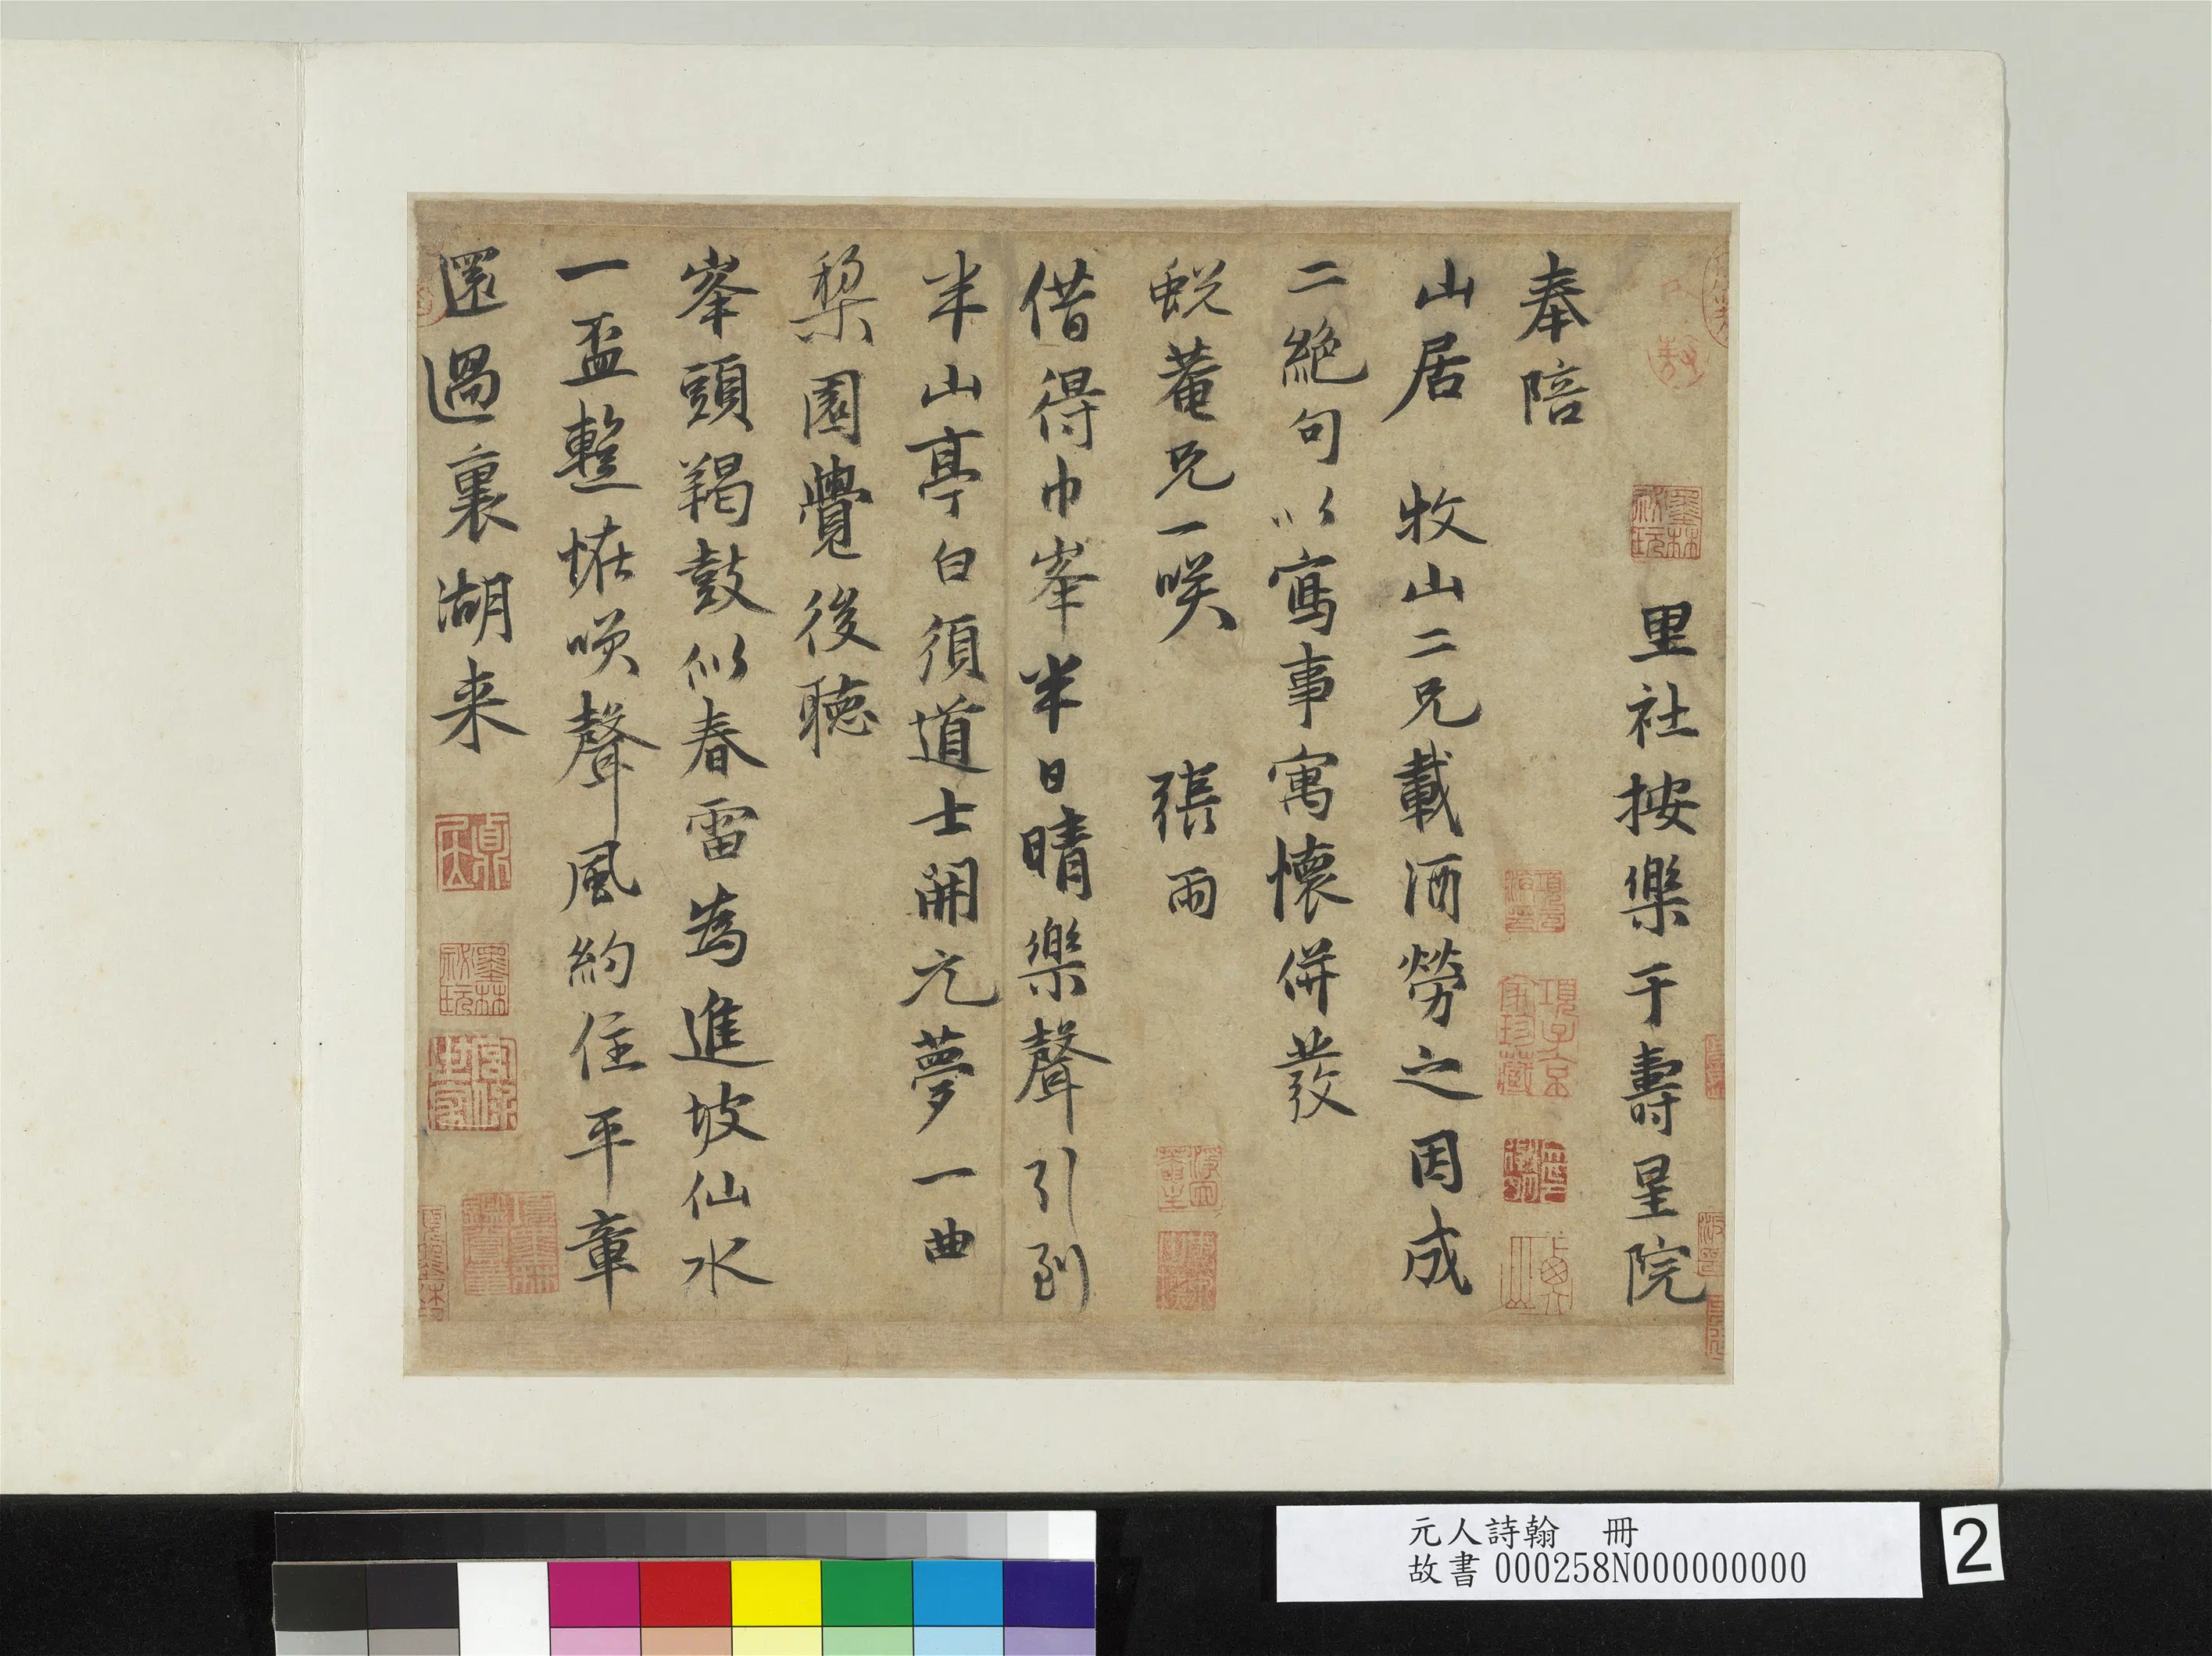 里社按樂于壽星院
奉陪
山居　牧山二兄載酒勞之因成
二絕句以寫事寓懷併發
蛻菴兄一咲　張雨
借得巾峯半日晴樂聲引到
半山亭白須道士開元夢一曲
棃園覺後聴
峯頭羯鼓似春雷為進坡仙水
一盃整恠喚聲風約住平章
還過裏湖来
墨林祕玩
項子京家珍藏
墨林祕玩
元人詩翰　冊
故書000258N000000000
2